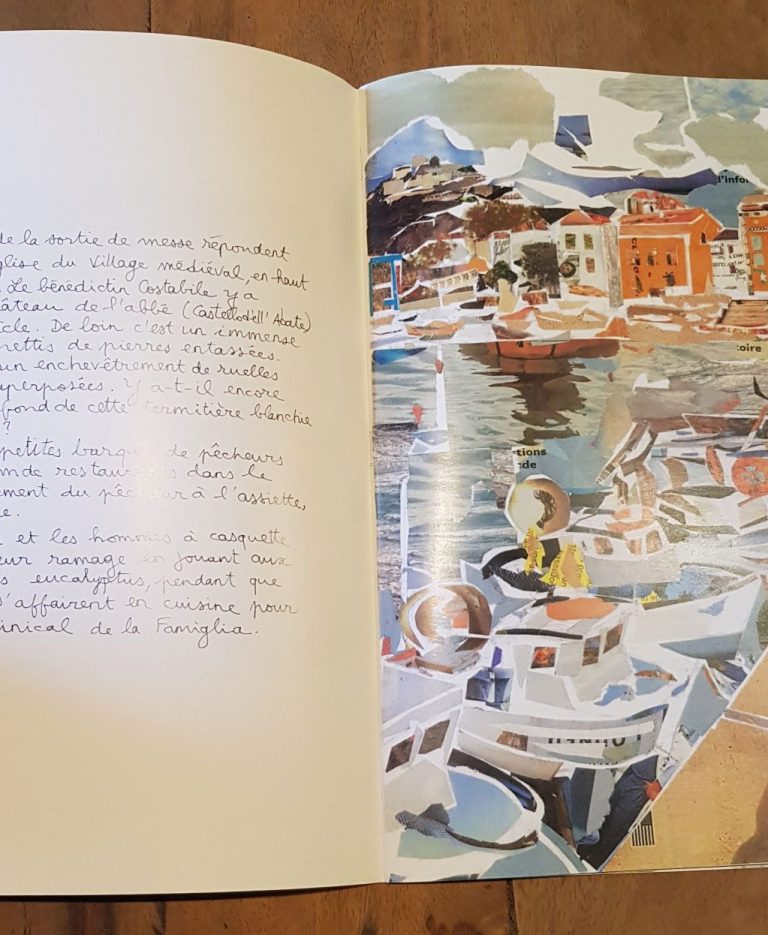 de la sortie de messe répondent
glise du Village médiéval, en haut
. Le bénédictin Costabile y a
hâteau de l'abbé (Castellodell' Abate)
cle. De loin c'est un immense
hettis de pierres entassées.
un enchevêtrement de ruelles
uperposées. Y a-t-il encore
fond de cette termitière blanchie
?
petites barques de pêcheurs
de restaurants dans le
ement du pêcheur à l'assiette,
e.
et les hommes à casquette
eur ramage en jouant aux
s eucalyptus, pendant que
s'affairent en cuisine pour
inical de la Famiglia.
d'infor
toire
tions
de